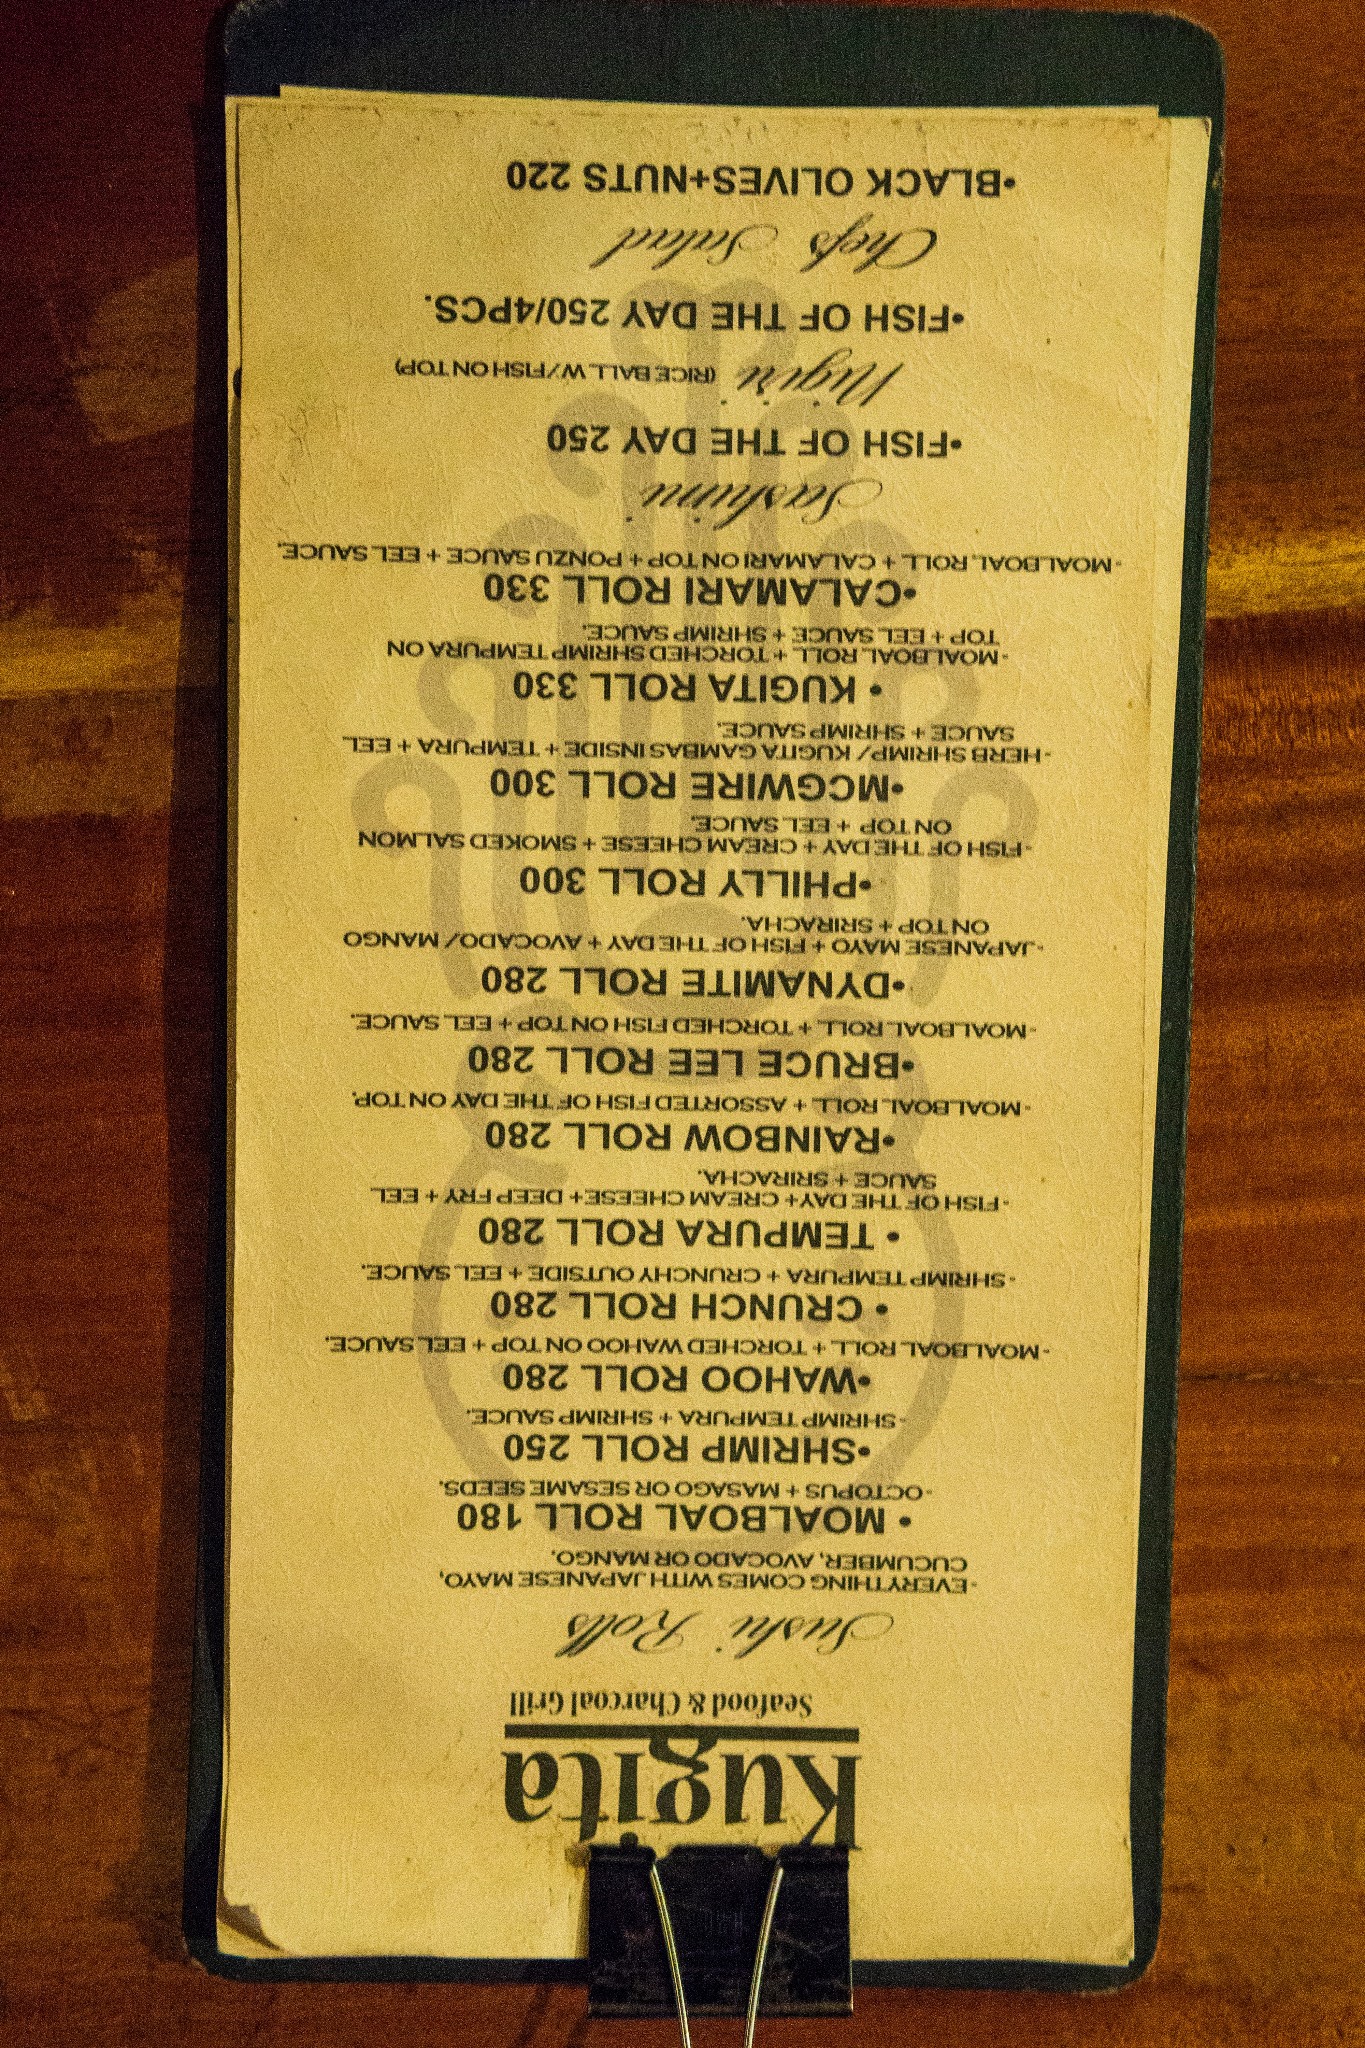 Kugita
Seafood & Charcoal Grill
Sushi Rolls
-EVERYTHING COMES WITH JAPANESE MAYO,
CUCUMBER, AVOCADO OR MANGO.
• MOALBOAL ROLL 180
-OCTOPUS + MASAGO OR SESAME SEEDS.
•SHRIMP ROLL 250
-SHRIMP TEMPURA + SHRIMP SAUCE.
•WAHOO ROLL 280
-MOALBOAL ROLL + TORCHED WAHOO ON TOP + EEL SAUCE.
• CRUNCH ROLL 280
-SHRIMP TEMPURA + CRUNCHY OUTSIDE + EEL SAUCE.
• TEMPURA ROLL 280
-FISH OF THE DAY+ CREAM CHEESE+ DEEP FRY + EEL
SAUCE + SRIRACHA.
•RAINBOW ROLL 280
-MOALBOAL ROLL + ASSORTED FISH OF THE DAY ON TOP.
•BRUCE LEE ROLL 280
-MOALBOAL ROLL + TORCHED FISH ON TOP + EEL SAUCE.
•DYNAMITE ROLL 280
-JAPANESE MAYO + FISH OF THE DAY + AVOCADO/ MANGO
ON TOP + SRIRACHA.
•PHILLY ROLL 300
-FISH OF THE DAY + CREAM CHEESE + SMOKED SALMON
ON TOP + EEL SAUCE.
•MCGWIRE ROLL 300
-HERB SHRIMP/ KUGITA GAMBAS INSIDE + TEMPURA + EEL
SAUCE + SHRIMP SAUCE.
• KUGITA ROLL 330
-MOALBOAL ROLL + TORCHED SHRIMP TEMPURA ON
TOP + EEL SAUCE + SHRIMP SAUCE.
•CALAMARI ROLL 330
-MOALBOAL ROLL + CALAMARI ON TOP + PONZU SAUCE + EEL SAUCE.
Sashimi
•FISH OF THE DAY 250
Nigiri (RICE BALL W/FISH ON TOP)
•FISH OF THE DAY 250/4PCS.
Chefs Salad
•BLACK OLIVES+NUTS 220